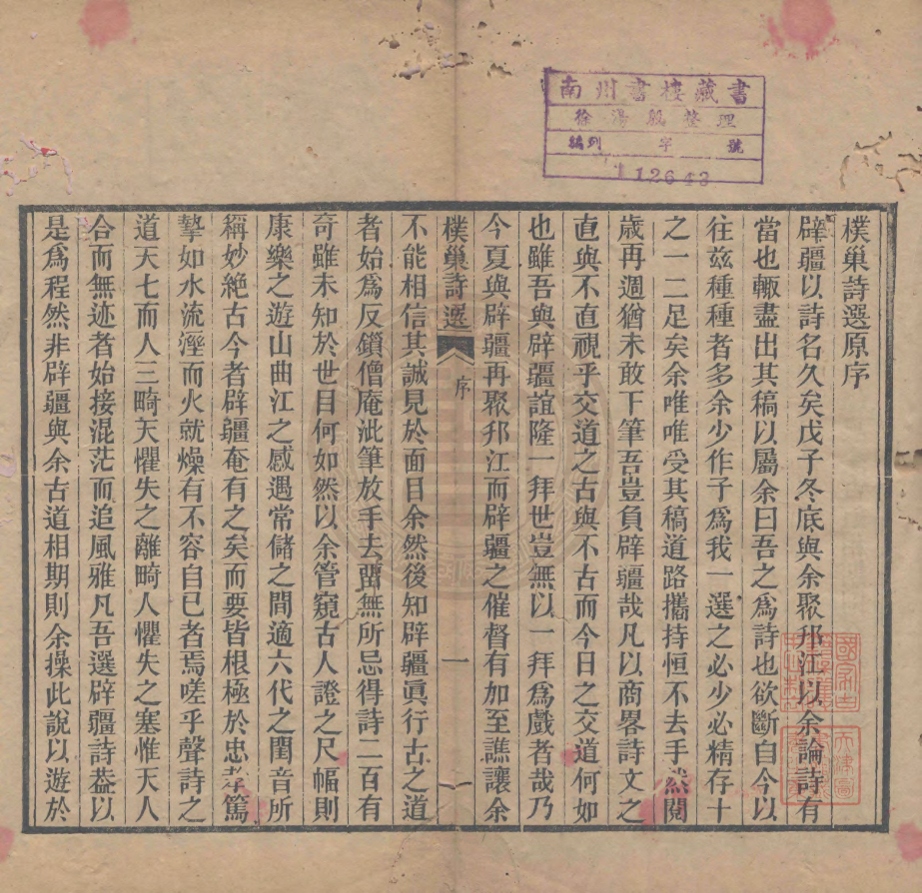 樸巢詩選原序
辟疆以詩名久矣戊子冬底與余聚邗江以余論詩有
當也輙盡出其稿以屬余曰吾之為詩也欲斷自今以
往玆種種者多余少作子為我一選之必少必精存十
之一二足矣余唯唯受其稿道路攜持恒不去手然閱
歲再週猶未敢下筆吾豈負辟疆哉凡以商畧詩文之
直與不直視乎交道之古與不古而今日之交道何如
也雖吾與辟疆誼隆一拜世豈無以一拜為戲者哉乃
今夏與辟疆再聚邗江而辟疆之催督有加至譙讓余
樸巢詩選
序
一
不能相信其誠見於面目余然後知辟疆眞行古之道
者始為反鎖僧庵泚筆放手去畱無所忌得詩二百有
奇雖未知於世目何如然以余管窺古人證之尺幅則
康樂之遊山曲江之感遇常儲之間適六代之閨音所
稱妙絕古今者辟疆奄有之矣而要皆根極於忠孝篤
摯如水流溼而火就燥有不容自已者焉嗟乎聲詩之
道天七而人三畸天懼失之離畸人懼失之塞惟天人
合而無迹者始接混茫而追風雅凡吾選辟疆詩葢以
是為程然非辟疆與余古道相期則余操此說以遊於
南州書樓藏書
徐湯殷整理
編列 字 號
112643